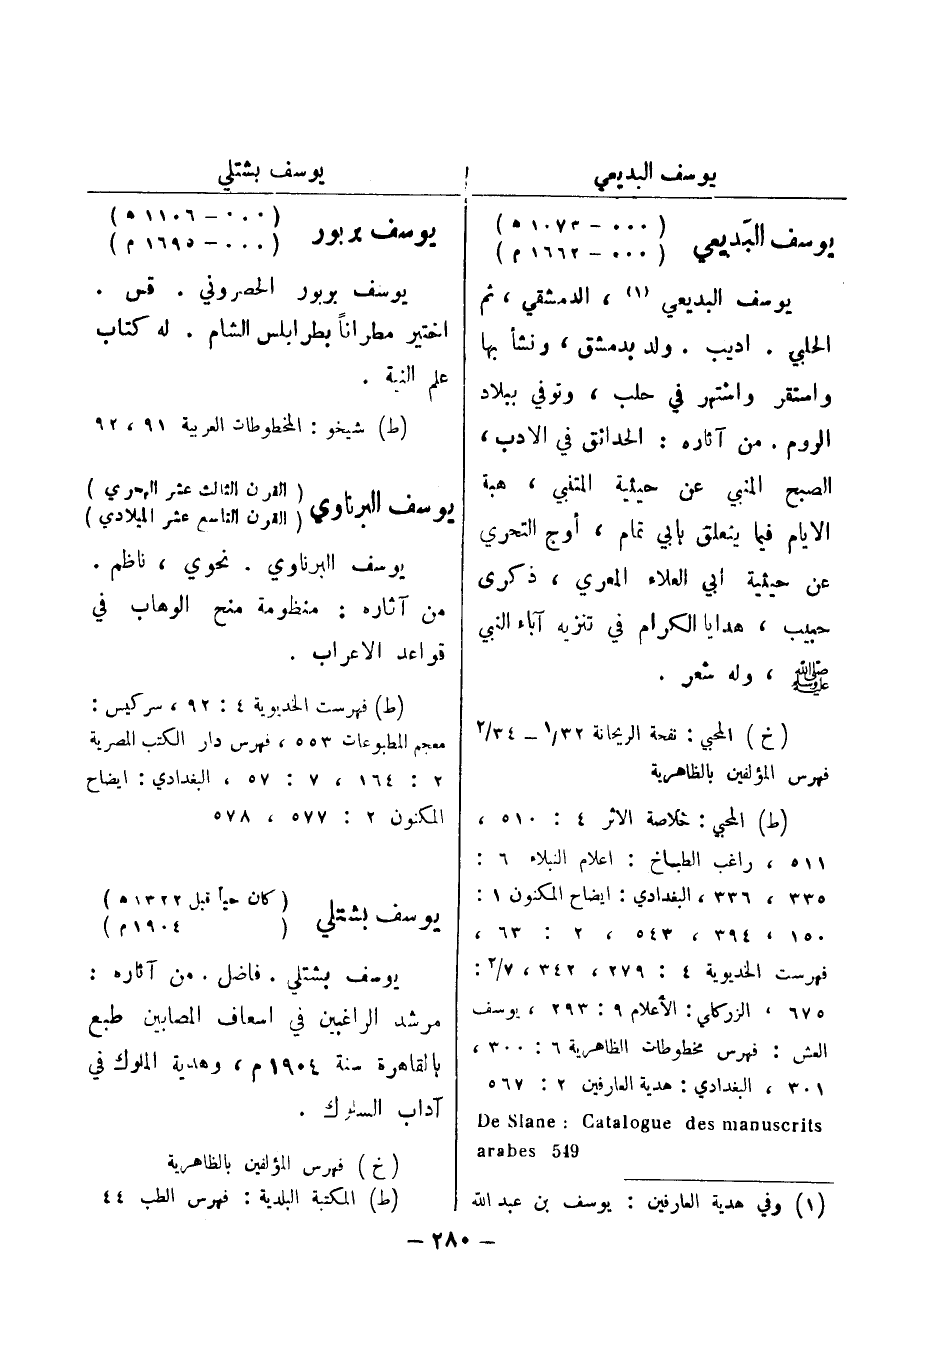 يوسف البديعي
يوسف بشتلي
يوسف البَديعي
( ٠٠٠ – ١٠٧٣ ه )
( ٠٠٠ – ١٦٦٢ م )
يوسف البديعي (١) ، الدمشقي ، ثم
الحلبي . اديب . ولد بدمشق ، ونشأ بها
واستقر واشتهر في حلب ، وتوفي ببلاد
الروم . من آثاره : الحدائق في الادب ،
الصبح المنبي عن حيثية المتنبي ، هبة
الايام فيما يتعلق بابي تمام ، أوج التحري
عن حيثية ابي العلاء المعري ، ذكرى
حبيب ، هدايا الكرام في تنزيه آباء النبي
ﷺ ، وله شعر .
( خ ) المحبي : نفحة الريحانة ١/٣٢ – ٢/٣٤
فهرس المؤلفين بالظاهرية
(ط) المحبي : خلاصة الاثر ٤ : ٥١٠ ،
٥١١ ، راغب الطباخ : اعلام النبلاء ٦ :
٣٣٥ ، ٣٣٦ ، البغدادي : ايضاح المكنون ١ :
١٥٠ ، ٣٩٤ ، ٥٤٣ ، ٢ : ٦٣ ،
فهرست الخديوية ٤ : ٢٧٩ ، ٣٤٢ ، ٢/٧ :
٦٧٥ ، الزركلي : الأعلام ٩ : ٢٩٣ ، يوسف
العش : فهرس مخطوطات الظاهرية ٦ : ٣٠٠ ،
٣٠١ ، البغدادي : هدية العارفين ٢ : ٥٦٧
De Slane : Catalogue des manuscrits
arabes 549
(١) وفي هدية العارفين : يوسف بن عبد الله
يوسف بربور
( ٠٠٠ – ١١٠٦ ه )
( ٠٠٠ – ١٦٩٥ م )
يوسف بربور الحصروني . قس .
اختير مطراناً بطرابلس الشام . له كتاب
علم النية .
(ط) شيخو : المخطوطات العربية ٩١ ، ٩٢
يوسف البرناوي
( القرن الثالث عشر الهجري )
( القرن التاسع عشر الميلادي )
يوسف البرناوي . نحوي ، ناظم .
من آثاره : منظومة منح الوهاب في
قواعد الاعراب .
(ط) فهرست الخديوية ٤ : ٩٢ ، سركيس :
معجم المطبوعات ٥٥٣ ، فهرس دار الكتب المصرية
٢ : ١٦٤ ، ٧ : ٥٧ ، البغدادي : ايضاح
المكنون ٢ : ٥٧٧ ، ٥٧٨
يوسف بشتلي
( كان حياً قبل ١٣٢٢ ه )
( ١٩٠٤ م )
يوسف بشتلي . فاضل . من آثاره :
مرشد الراغبين في اسعاف المصابين طبع
بالقاهرة سنة ١٩٠٤ م ، وهدية الملوك في
آداب السلوك .
( خ ) فهرس المؤلفين بالظاهرية
(ط) المكتبة البلدية : فهرس الطب ٤٤
– ٢٨٠ –